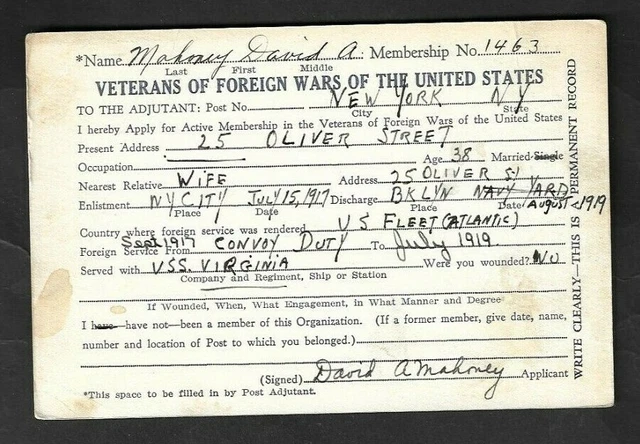 *Name Mahoney David A. Membership No. 1463
Last First Middle
VETERANS OF FOREIGN WARS OF THE UNITED STATES
TO THE ADJUTANT: Post No. NEW YORK NY
City State
I hereby Apply for Active Membership in the Veterans of Foreign Wars of the United States
Present Address 25 OLIVER STREET
Occupation Age 38 Married-Single
Nearest Relative WIFE Address 25 OLIVER ST
Enlistment NY CITY JULY 15, 1917 Discharge BKLYN NAVY YARD AUGUST 1919
Place Date Place Date
Country where foreign service was rendered US FLEET (ATLANTIC)
Foreign Service From Sept 1917 CONVOY DUTY To July 1919
Served with USS. VIRGINIA Were you wounded? NO
Company and Regiment, Ship or Station
If Wounded, When, What Engagement, in What Manner and Degree
I have—have not—been a member of this Organization. (If a former member, give date, name,
number and location of Post to which you belonged.)
(Signed) David A Mahoney Applicant
*This space to be filled in by Post Adjutant.
WRITE CLEARLY—THIS IS A PERMANENT RECORD